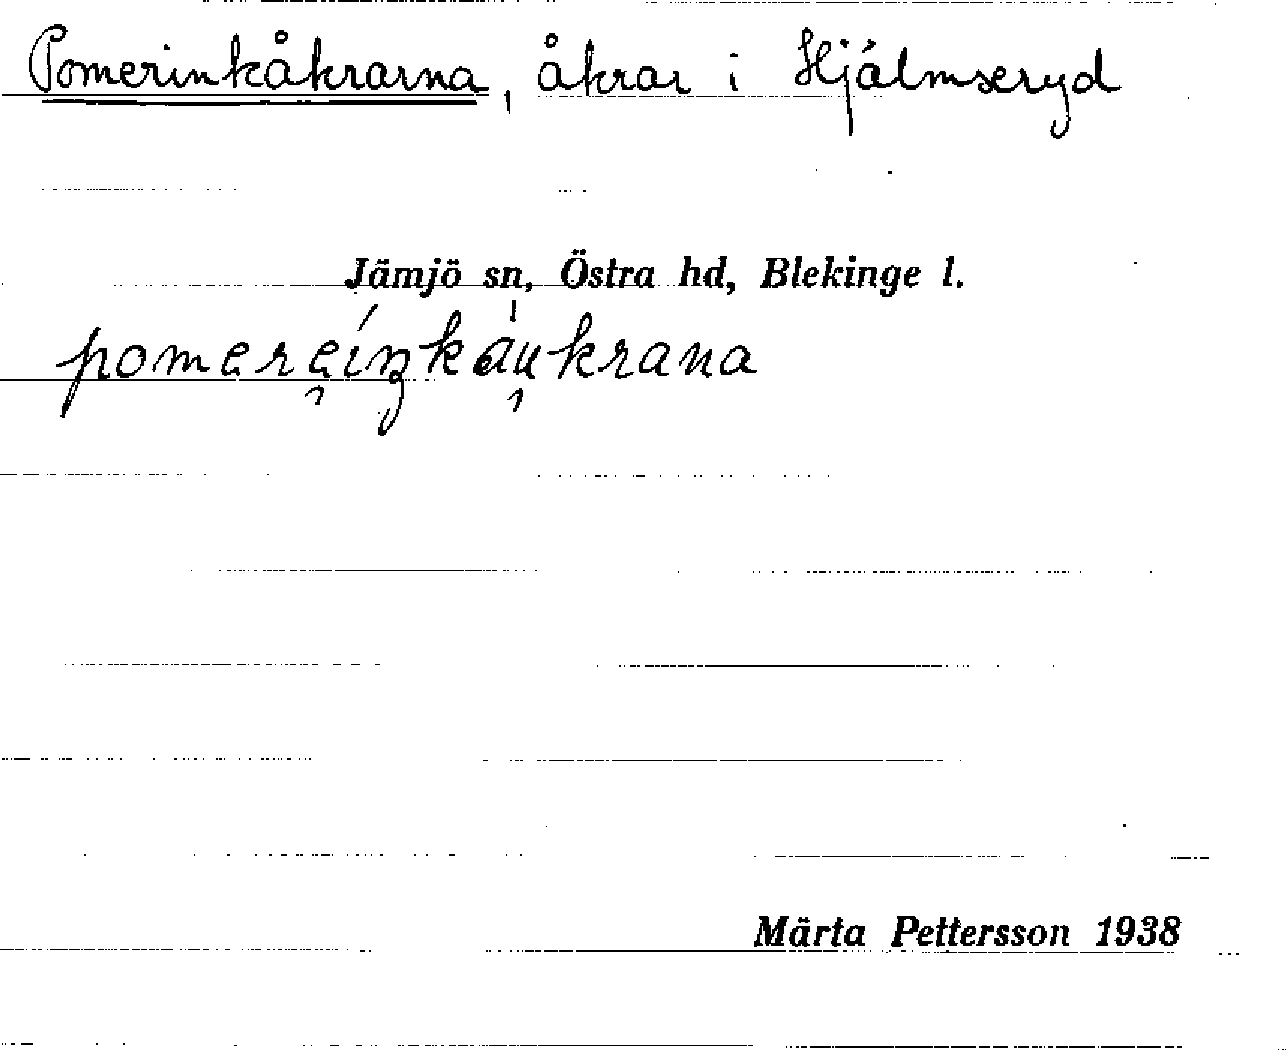 Pomerinkåkrarna, åkrar i Hjälmseryd
Jämjö sn, Östra hd, Blekinge l.
pomereíŋkáukrana
Märta Pettersson 1938